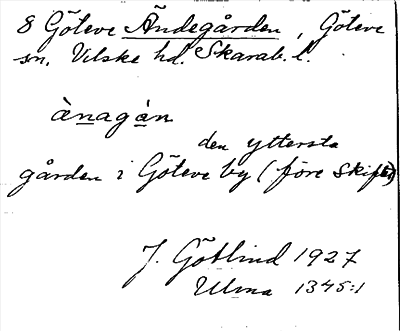 8 Göteve Ändegården, Göteve
sn, Vilske hd. Skarab. l.
ànagán
den yttersta
gården i Göteve by (före skiftet)
J. Götlind 1927
Ulma 1345:1